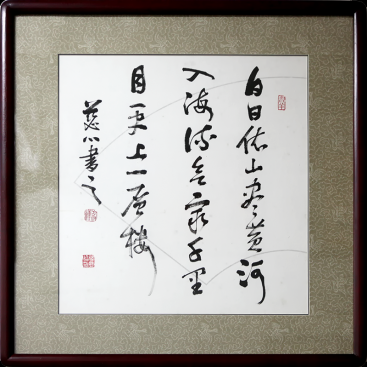 白日依山尽黄河
入海流欲穷千里
目更上一层楼
慈心書之